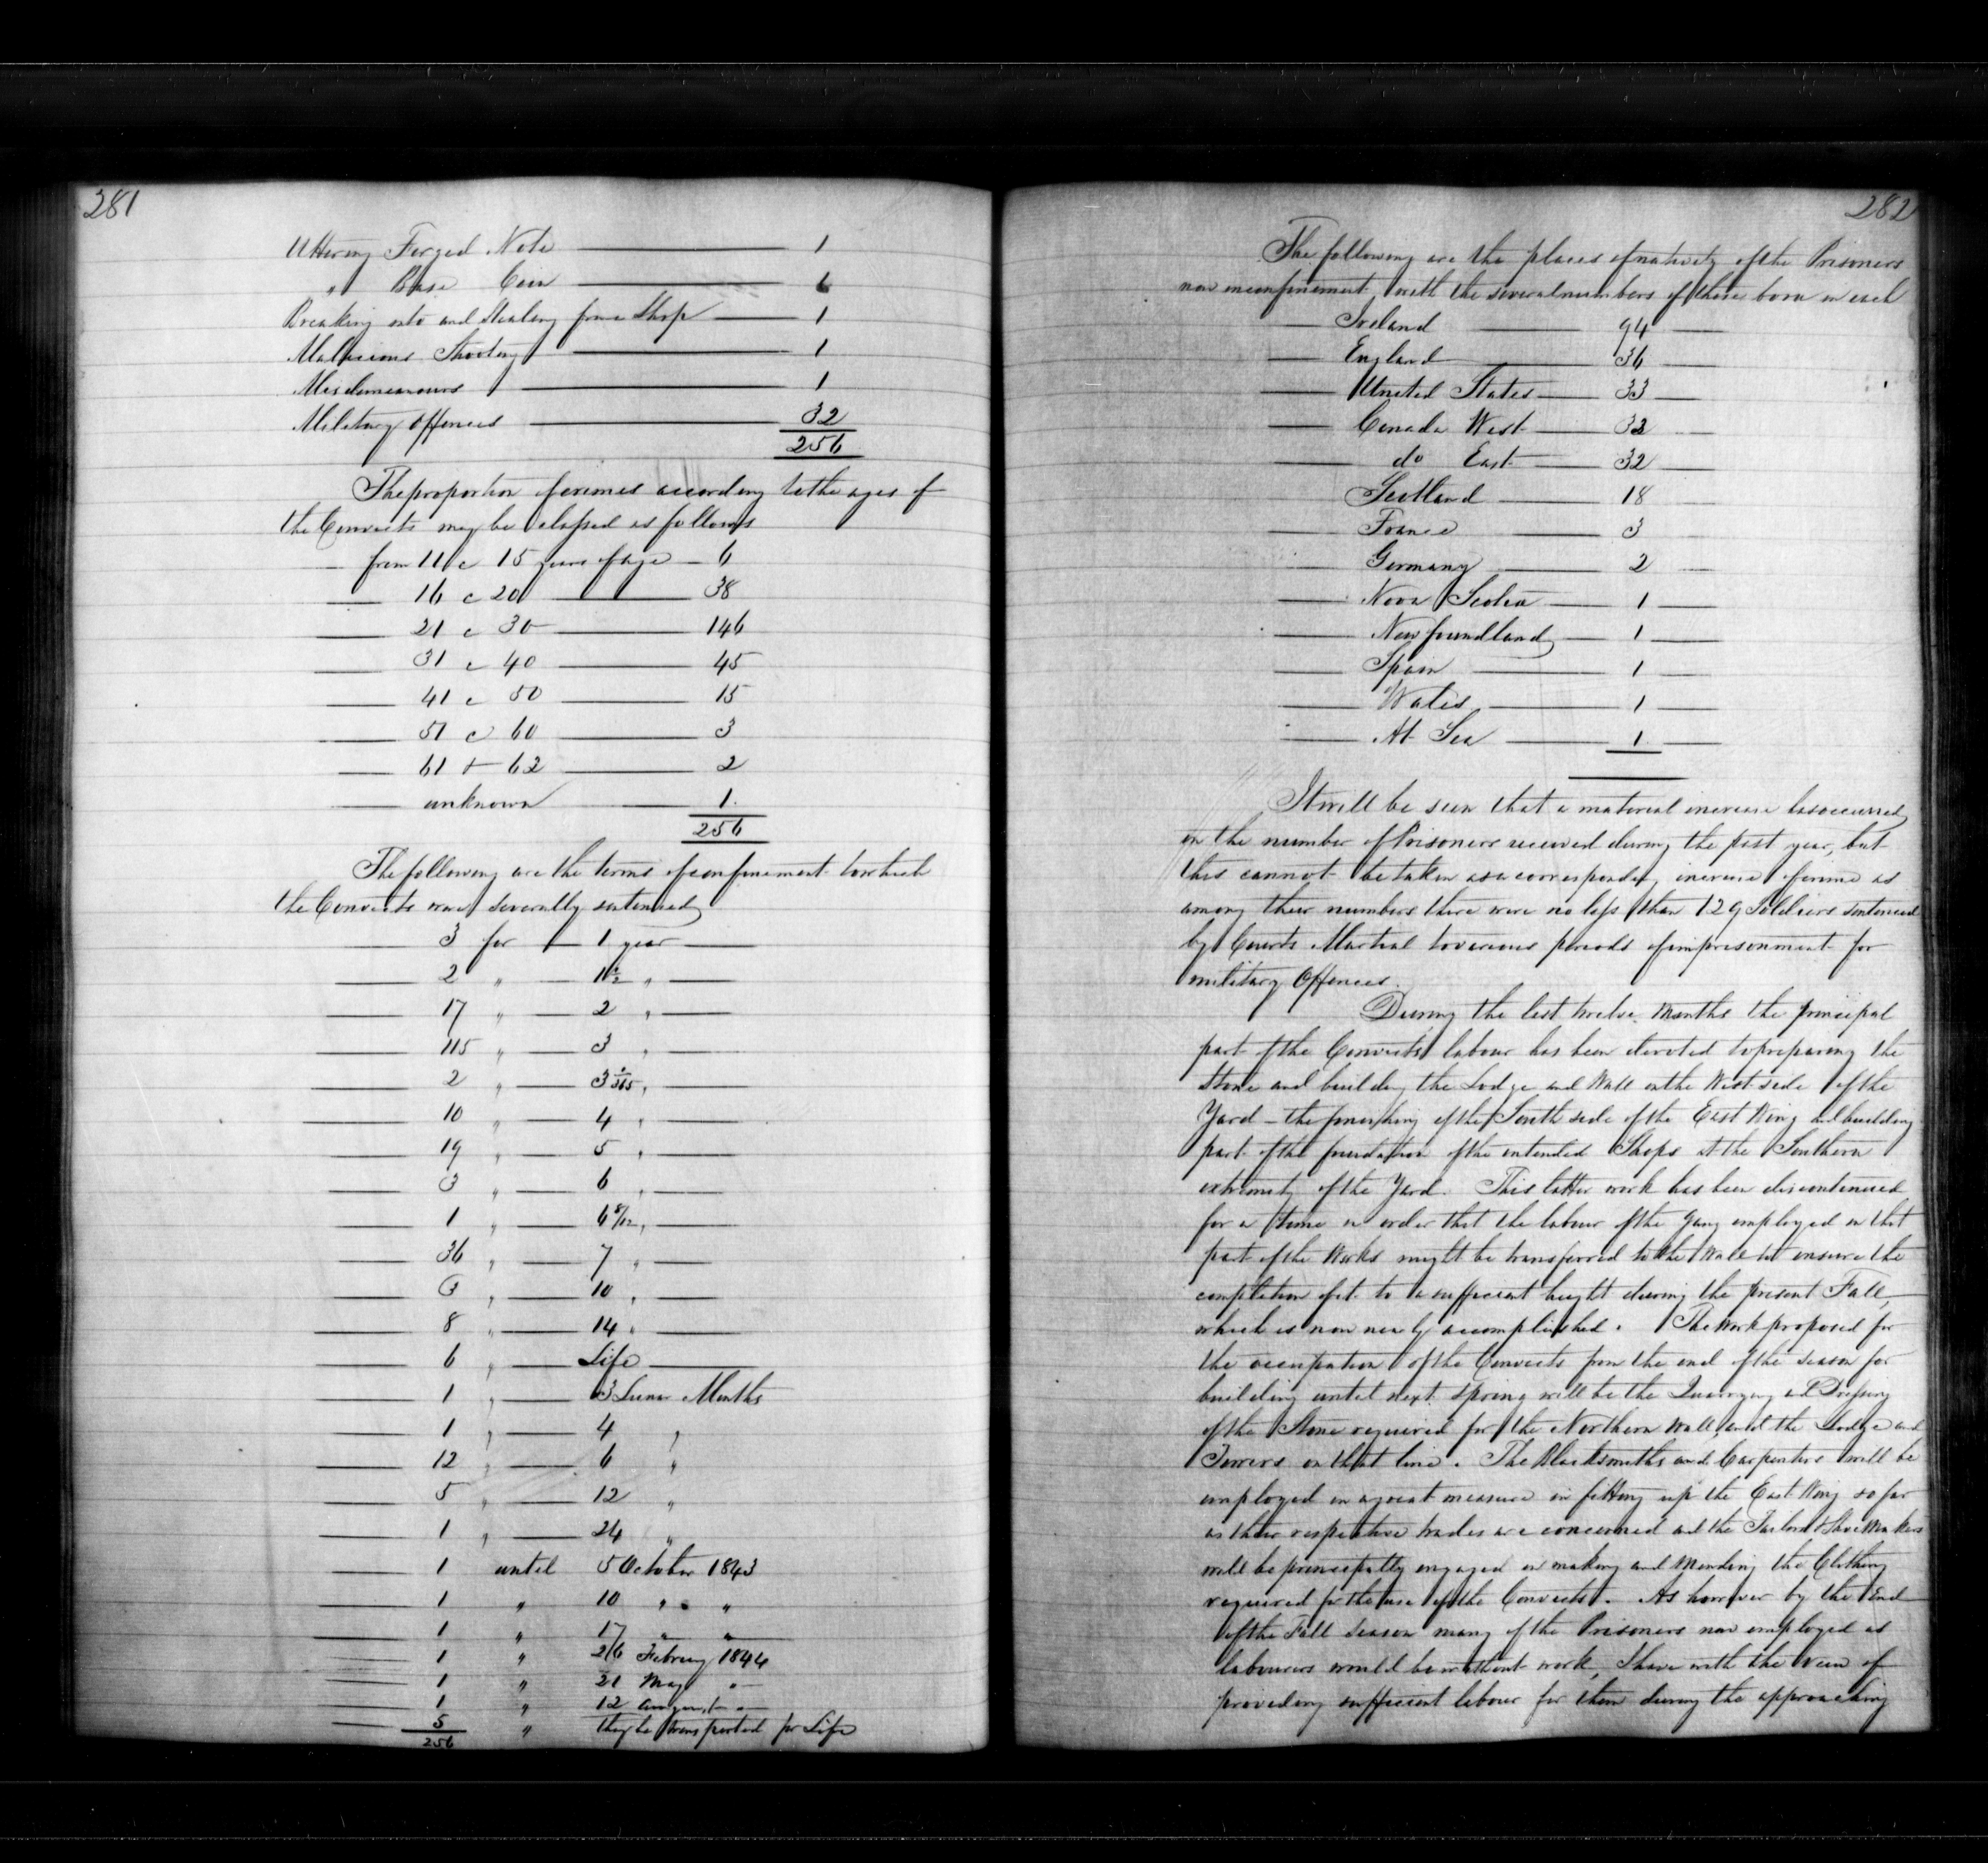 281
Uttering Forged Note 1
" Base Coin 6
Breaking into and Stealing from a Shop 1
Malicious Shooting 1
Misdemeanours 1
Military Offences 32
256
The proportion of crimes according to the ages of
the Convicts may be classed as follows
from 11 a 15 years of age 6
16 a 20 38
21 a 30 146
31 a 40 45
41 a 50 15
51 a 60 3
61 + 62 2
unknown 1
256
The following are the terms of confinement to which
the Convicts were severally sentenced
3 for 1 year
2 " 1½ "
17 " 2 "
115 " 3 "
2 " 3 1/365 "
10 " 4 "
19 " 5 "
3 " 6 "
1 " 6 8/12 "
36 " 7 "
3 " 10 "
8 " 14 "
6 " Life
1 " 3 Lunar Months
1 " 4 "
12 " 6 "
5 " 12 "
1 " 24 "
1 until 5 October 1843
1 " 10 " "
1 " 17 " "
1 " 26 February 1844
1 " 21 May "
1 " 12 August "
5 " they be transported for Life
256
282
The following are the places of nativity of the Prisoners
now in confinement, with the several numbers of those born in each
Ireland 94
England 36
United States 33
Canada West 33
do East 32
Scotland 18
France 3
Germany 2
Nova Scotia 1
Newfoundland 1
Spain 1
Wales 1
At Sea 1
It will be seen that a material increase has occurred
in the number of Prisoners received during the past year, but
this cannot be taken as a corresponding increase of crime as
among their numbers there were no less than 129 Soldiers sentenced
by Courts Martial to various periods of imprisonment for
military Offences.
During the last twelve Months the principal
part of the Convicts labour has been devoted to preparing the
Stone and building the Lodge and Wall on the West side of the
Yard – the finishing of the South side of the East Wing and building
part of the foundation of the intended Shops at the Southern
extremity of the Yard. This latter work has been discontinued
for a time in order that the labour of the Gang employed on that
part of the Works might be transferred to the Wall to ensure the
completion of it to a sufficient height during the present Fall,
which is now nearly accomplished. The Work proposed for
the occupation of the Convicts from the end of the season for
building until next Spring will be the Quarrying and Dressing
of the Stone required for the Northern Wall, and the Lodge and
Towers on that line. The Blacksmiths and Carpenters will be
employed in a great measure in fitting up the East Wing so far
as their respective trades are concerned and the Tailors & Shoe Makers
will be principally engaged in making and Mending the Clothing
required for the use of the Convicts. As however by the End
of the Fall Season many of the Prisoners now employed as
labourers would be without work, I have with the view of
providing sufficient labour for them during the approaching